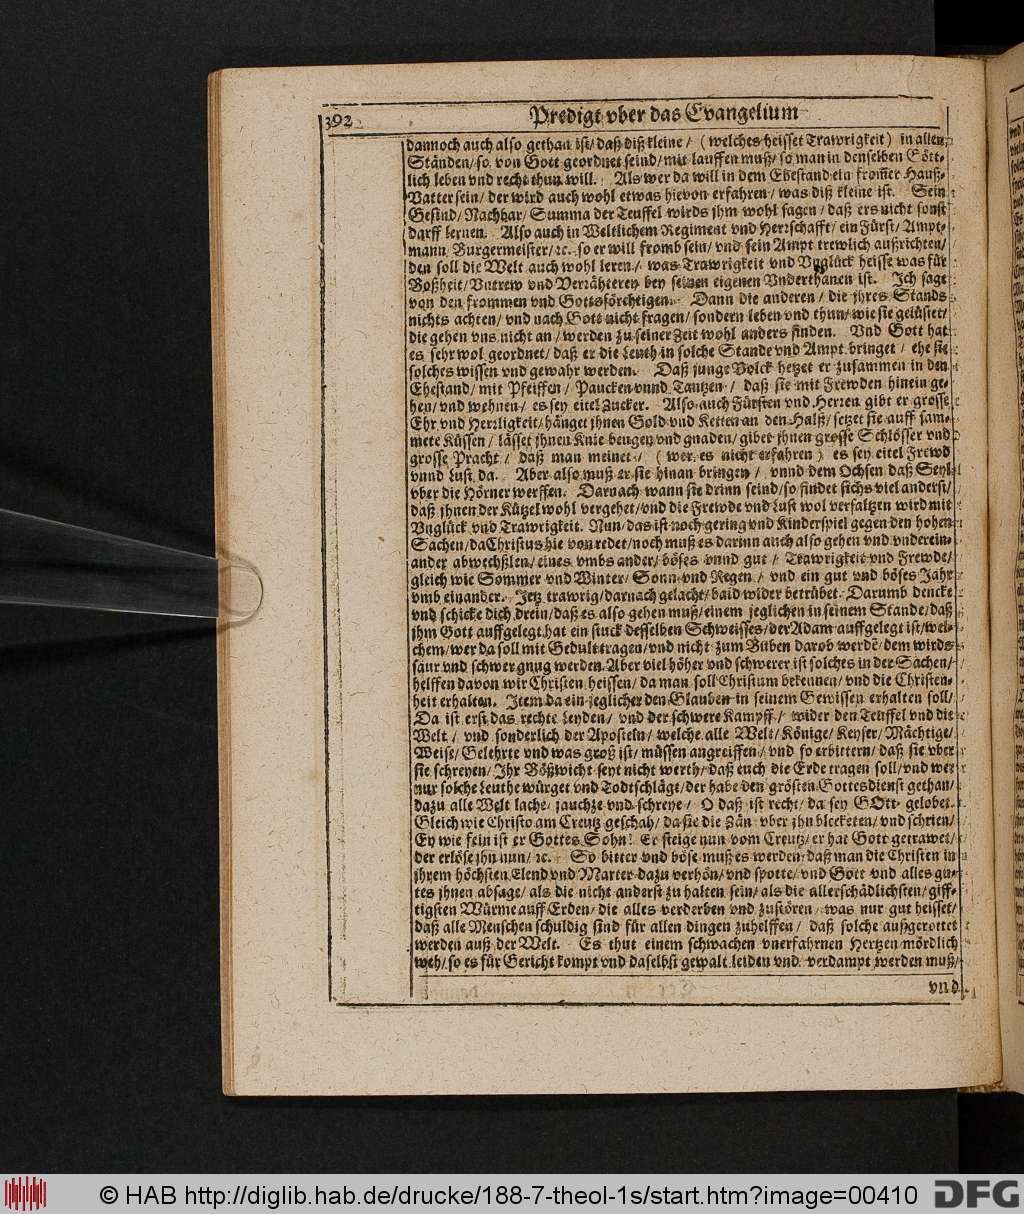 392
Predigt vber das Evangelium
dannoch auch also gethan ist/ daß diß kleine/ (welches heisset Trawrigkeit) in allen
Ständen/ so von Gott geordnet seind/ mit lauffen muß/ so man in denselben Gött-
lich leben vnd recht thun will. Als wer da will in dem Ehestand ein from̃er Hauß-
Vatter sein/ der wird auch wohl etwas hievon erfahren/ was diß kleine ist. Sein
Gesind/ Nachbar/ Summa der Teuffel wirds jhm wohl sagen/ daß ers nicht sonst
darff lernen. Also auch in Weltlichem Regiment vnd Herrschafft/ ein Fürst/ Ampt-
mann Burgermeister/ ꝛc. so er will fromb sein/ vnd sein Ampt trewlich außrichten/
den soll die Welt auch wohl leren/ was Trawrigkeit vnd Vnglück heisse was für
Boßheit/ Vntrew vnd Verrähteren bey seinen eigenen Vnderthanen ist. Ich sage
von den frommen vnd Gottsförchtigen. Dann die anderen/ die jhres Stands
nichts achten/ vnd nach Gott nicht fragen/ sondern leben vnd thun/ wie sie gelüstet/
die gehen vns nicht an/ werden zu seiner Zeit wohl anders finden. Vnd Gott hat
es sehr wol geordnet/ daß er die Leuth in solche Stande vnd Ampt bringet/ ehe sie
solches wissen vnd gewahr werden. Daß junge Volck hetzet er zusammen in den
Ehestand/ mit Pfeiffen/ Paucken vnnd Tantzen/ daß sie mit Frewden hinein ge-
hen/ vnd wehnen/ es sey eitel Zucker. Also auch Fürsten vnd Herren gibt er grosse
Ehr vnd Herrligkeit/ hänget jhnen Gold vnd Ketten an den Halß/ setzet sie auff sam-
mete Küssen/ lässet jhnen Knie beugen vnd gnaden/ gibet jhnen grosse Schlösser vnd
grosse Pracht/ daß man meinet/ (wer es nicht erfahren) es sey eitel Frewd
vnnd Lust da. Aber also muß er sie hinan bringen/ vnnd dem Ochsen daß Seyl
vber die Hörner werffen. Darnach wann sie drinn seind/ so findet sichs viel anderst/
daß jhnen der Kützel wohl vergehet/ vnd die Frewde vnd Lust wol versaltzen wird mit
Vnglück vnd Trawrigkeit. Nun/ das ist noch gering vnd Kinderspiel gegen den hohen
Sachen/ da Christus hie von redet/ noch muß es darinn auch also gehen vnd vnderein-
ander abwechßlen/ eines vmbs ander/ böses vnnd gut/ Trawrigkeit vnd Frewde/
gleich wie Sommer vnd Winter/ Sonn vnd Regen/ vnd ein gut vnd böses Jahr
vmb einander. Jetz trawrig/ darnach gelacht/ bald wider betrübet. Darumb dencke
vnd schicke dich drein/ daß es also gehen muß/ einem jeglichen in seinem Stande/ daß
jhm Gott auffgelegt hat ein stuck desselben Schweisses/ der Adam auffgelegt ist/ wel-
chem/ wer da soll mit Gedult tragen/ vnd nicht zum Buben darob werdẽ/ dem wirds
saur vnd schwer gnug werden. Aber viel höher vnd schwerer ist solches in der Sachen/
helffen davon wir Christen heissen/ da man soll Christum bekennen/ vnd die Christen-
heit erhalten. Item da ein jeglicher den Glauben in seinem Gewissen erhalten soll/
Da ist erst das rechte Leyden/ vnd der schwere Kampff/ wider den Teuffel vnd die
Welt/ vnd sonderlich der Aposteln/ welche alle Welt/ Könige/ Keyser/ Mächtige/
Weise/ Gelehrte vnd was groß ist/ müssen angreiffen/ vnd so erbittern/ daß sie vber
sie schreyen/ Ihr Bößwicht seyt nicht werth/ daß euch die Erde tragen soll/ vnd wer
nur solche Leuthe würget vnd Todtschlägt/ der habe den grösten Gottesdienst gethan/
dazu alle Welt lache/ jauchze vnd schreye/ O daß ist recht/ da sey GOtt gelobet.
Gleich wie Christo am Creutz geschah/ da sie die Zän vber jhn bleeketen/ vnd schrien/
Ey wie fein ist er Gottes Sohn! Er steige nun vom Creutz/ er hat Gott getrawet/
der erlöse jhn nun/ ꝛc. So bitter vnd böse muß es werden/ daß man die Christen in
jhrem höchsten Elend vnd Marter dazu verhön/ vnd spotte/ vnd Gott vnd alles gu-
tes jhnen absage/ als die nicht anderst zu halten sein/ als die allerschädlichsten/ giff-
tigsten Würme auff Erden/ die alles verderben vnd zustören/ was nur gut heisset/
daß alle Menschen schuldig sind für allen dingen zuhelffen/ daß solche außgerottet
werden auß der Welt. Es thut einem schwachen vnerfahrnen Hertzen mördlich
weh/ so es für Gericht kompt vnd daselbst gewalt leiden vnd verdampt werden muß/
vnd
© HAB http://diglib.hab.de/drucke/188-7-theol-1s/start.htm?image=00410
DFG